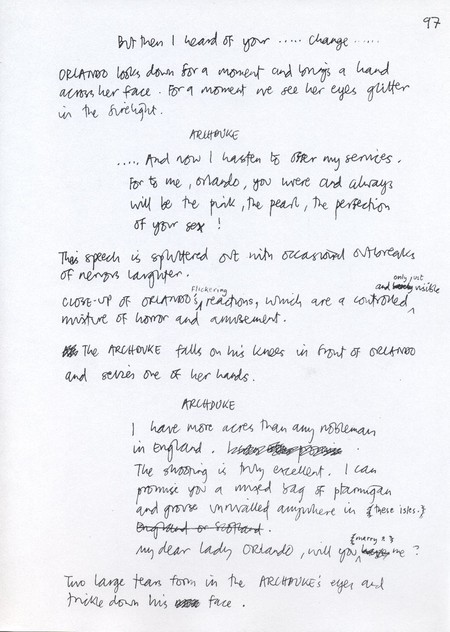 97
But then I heard of your ..... change ......
ORLANDO looks down for a moment and brings a hand
across her face. For a moment we see her eyes glitter
in the firelight.
ARCHDUKE
..... And now I hasten to offer my services.
For to me, Orlando, you were and always
will be the pink, the pearl, the perfection
of your sex !
This speech is spluttered out with occasional outbreaks
of nervous laughter.
CLOSE-UP of ORLANDO's flickering reactions, which are a controlled and only just visible
mixture of horror and amusement.
The ARCHDUKE falls on his knees in front of ORLANDO
and seizes one of her hands.
ARCHDUKE
I have more acres than any nobleman
in England.
The shooting is truly excellent. I can
promise you a mixed bag of ptarmigan
and grouse unrivalled anywhere in {these isles.}
England or Scotland.
My dear lady Orlando, will you {marry} me ?
Two large tears form in the ARCHDUKE's eyes and
trickle down his face.